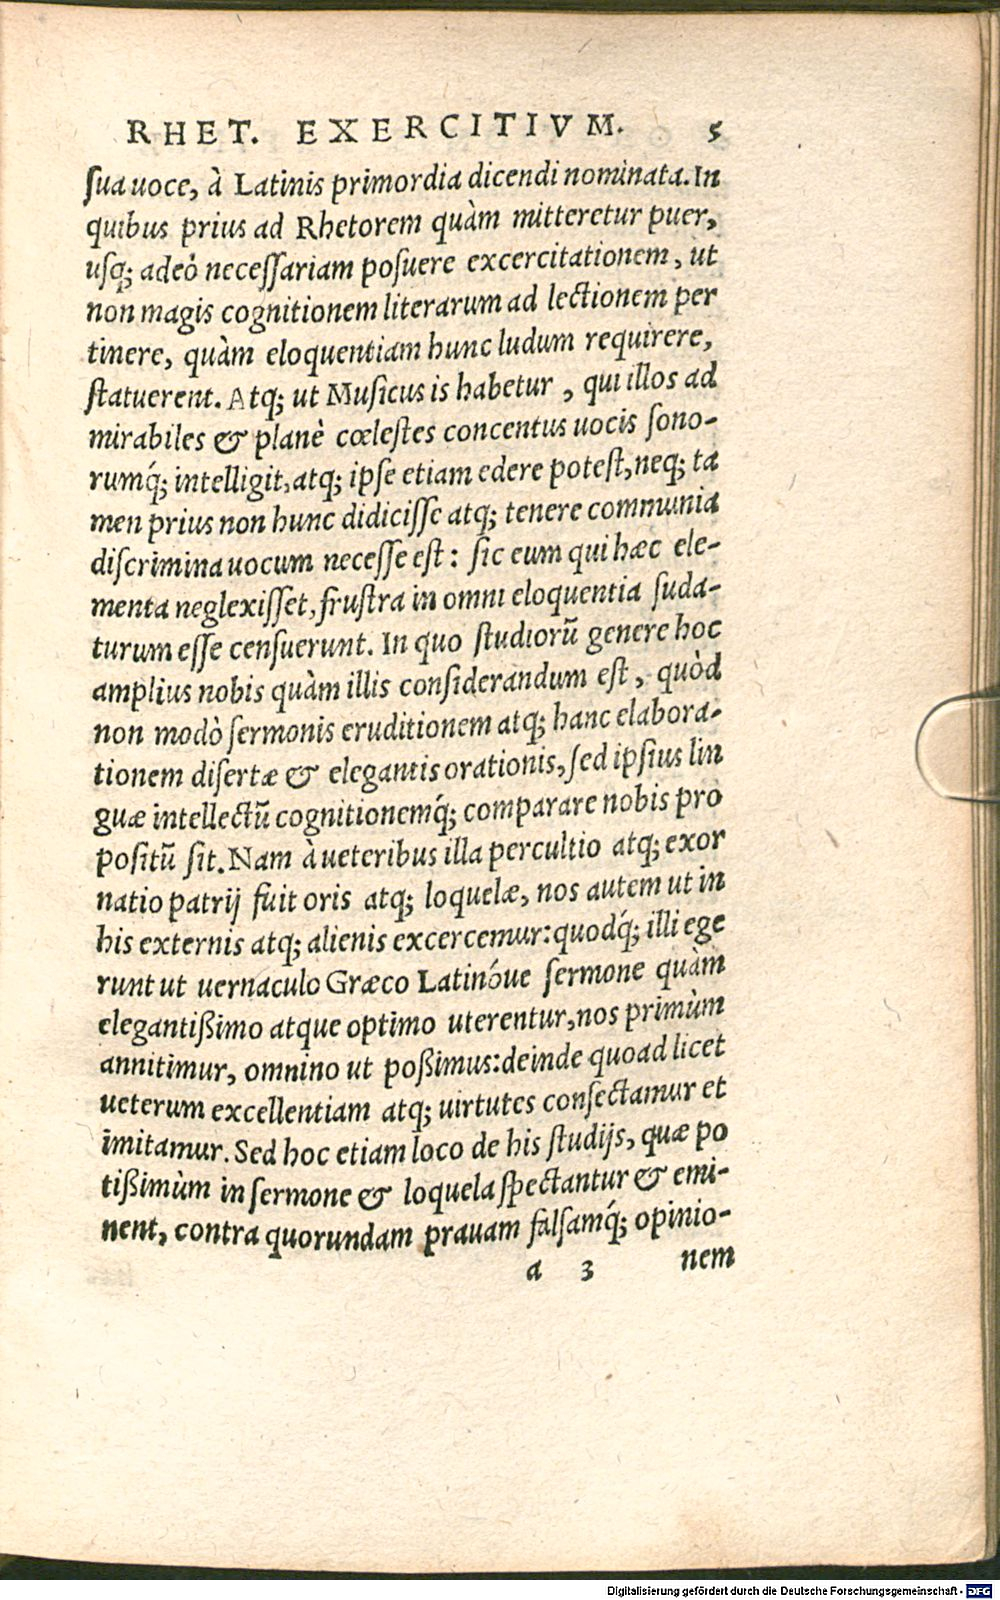 RHET. EXERCITIVM. 5
sua uoce, à Latinis primordia dicendi nominata. In
quibus prius ad Rhetorem quàm mitteretur puer,
usq; adeò necessariam posuere excercitationem, ut
non magis cognitionem literarum ad lectionem per
tinere, quàm eloquentiam hunc ludum requirere,
statuerent. Atq; ut Musicus is habetur, qui illos ad
mirabiles & planè cœlestes concentus uocis sono-
rumq́; intelligit, atq; ipse etiam edere potest, neq; ta
men prius non hunc didicisse atq; tenere communia
discrimina uocum necesse est: sic eum qui hæc ele-
menta neglexisset, frustra in omni eloquentia suda-
turum esse censuerunt. In quo studiorũ genere hoc
amplius nobis quàm illis considerandum est, quòd
non modò sermonis eruditionem atq; hanc elabora-
tionem disertæ & elegantis orationis, sed ipsius lin
guæ intellectũ cognitionemq́; comparare nobis pro
positũ sit. Nam à ueteribus illa percultio atq; exor
natio patrij fuit oris atq; loquelæ, nos autem ut in
his externis atq; alienis excercemur: quodq́; illi ege
runt ut uernaculo Græco Latinóue sermone quàm
elegantißimo atque optimo uterentur, nos primùm
annitimur, omnino ut poßimus: deinde quoad licet
ueterum excellentiam atq; uirtutes consectamur et
imitamur. Sed hoc etiam loco de his studijs, quæ po
tißimùm in sermone & loquela spectantur & emi-
nent, contra quorundam prauam falsamq́; opinio-
a 3 nem
Digitalisierung gefördert durch die Deutsche Forschungsgemeinschaft - DFG